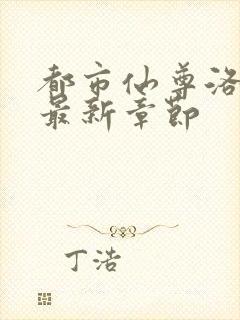 都市仙尊洛
最新章节
丁浩